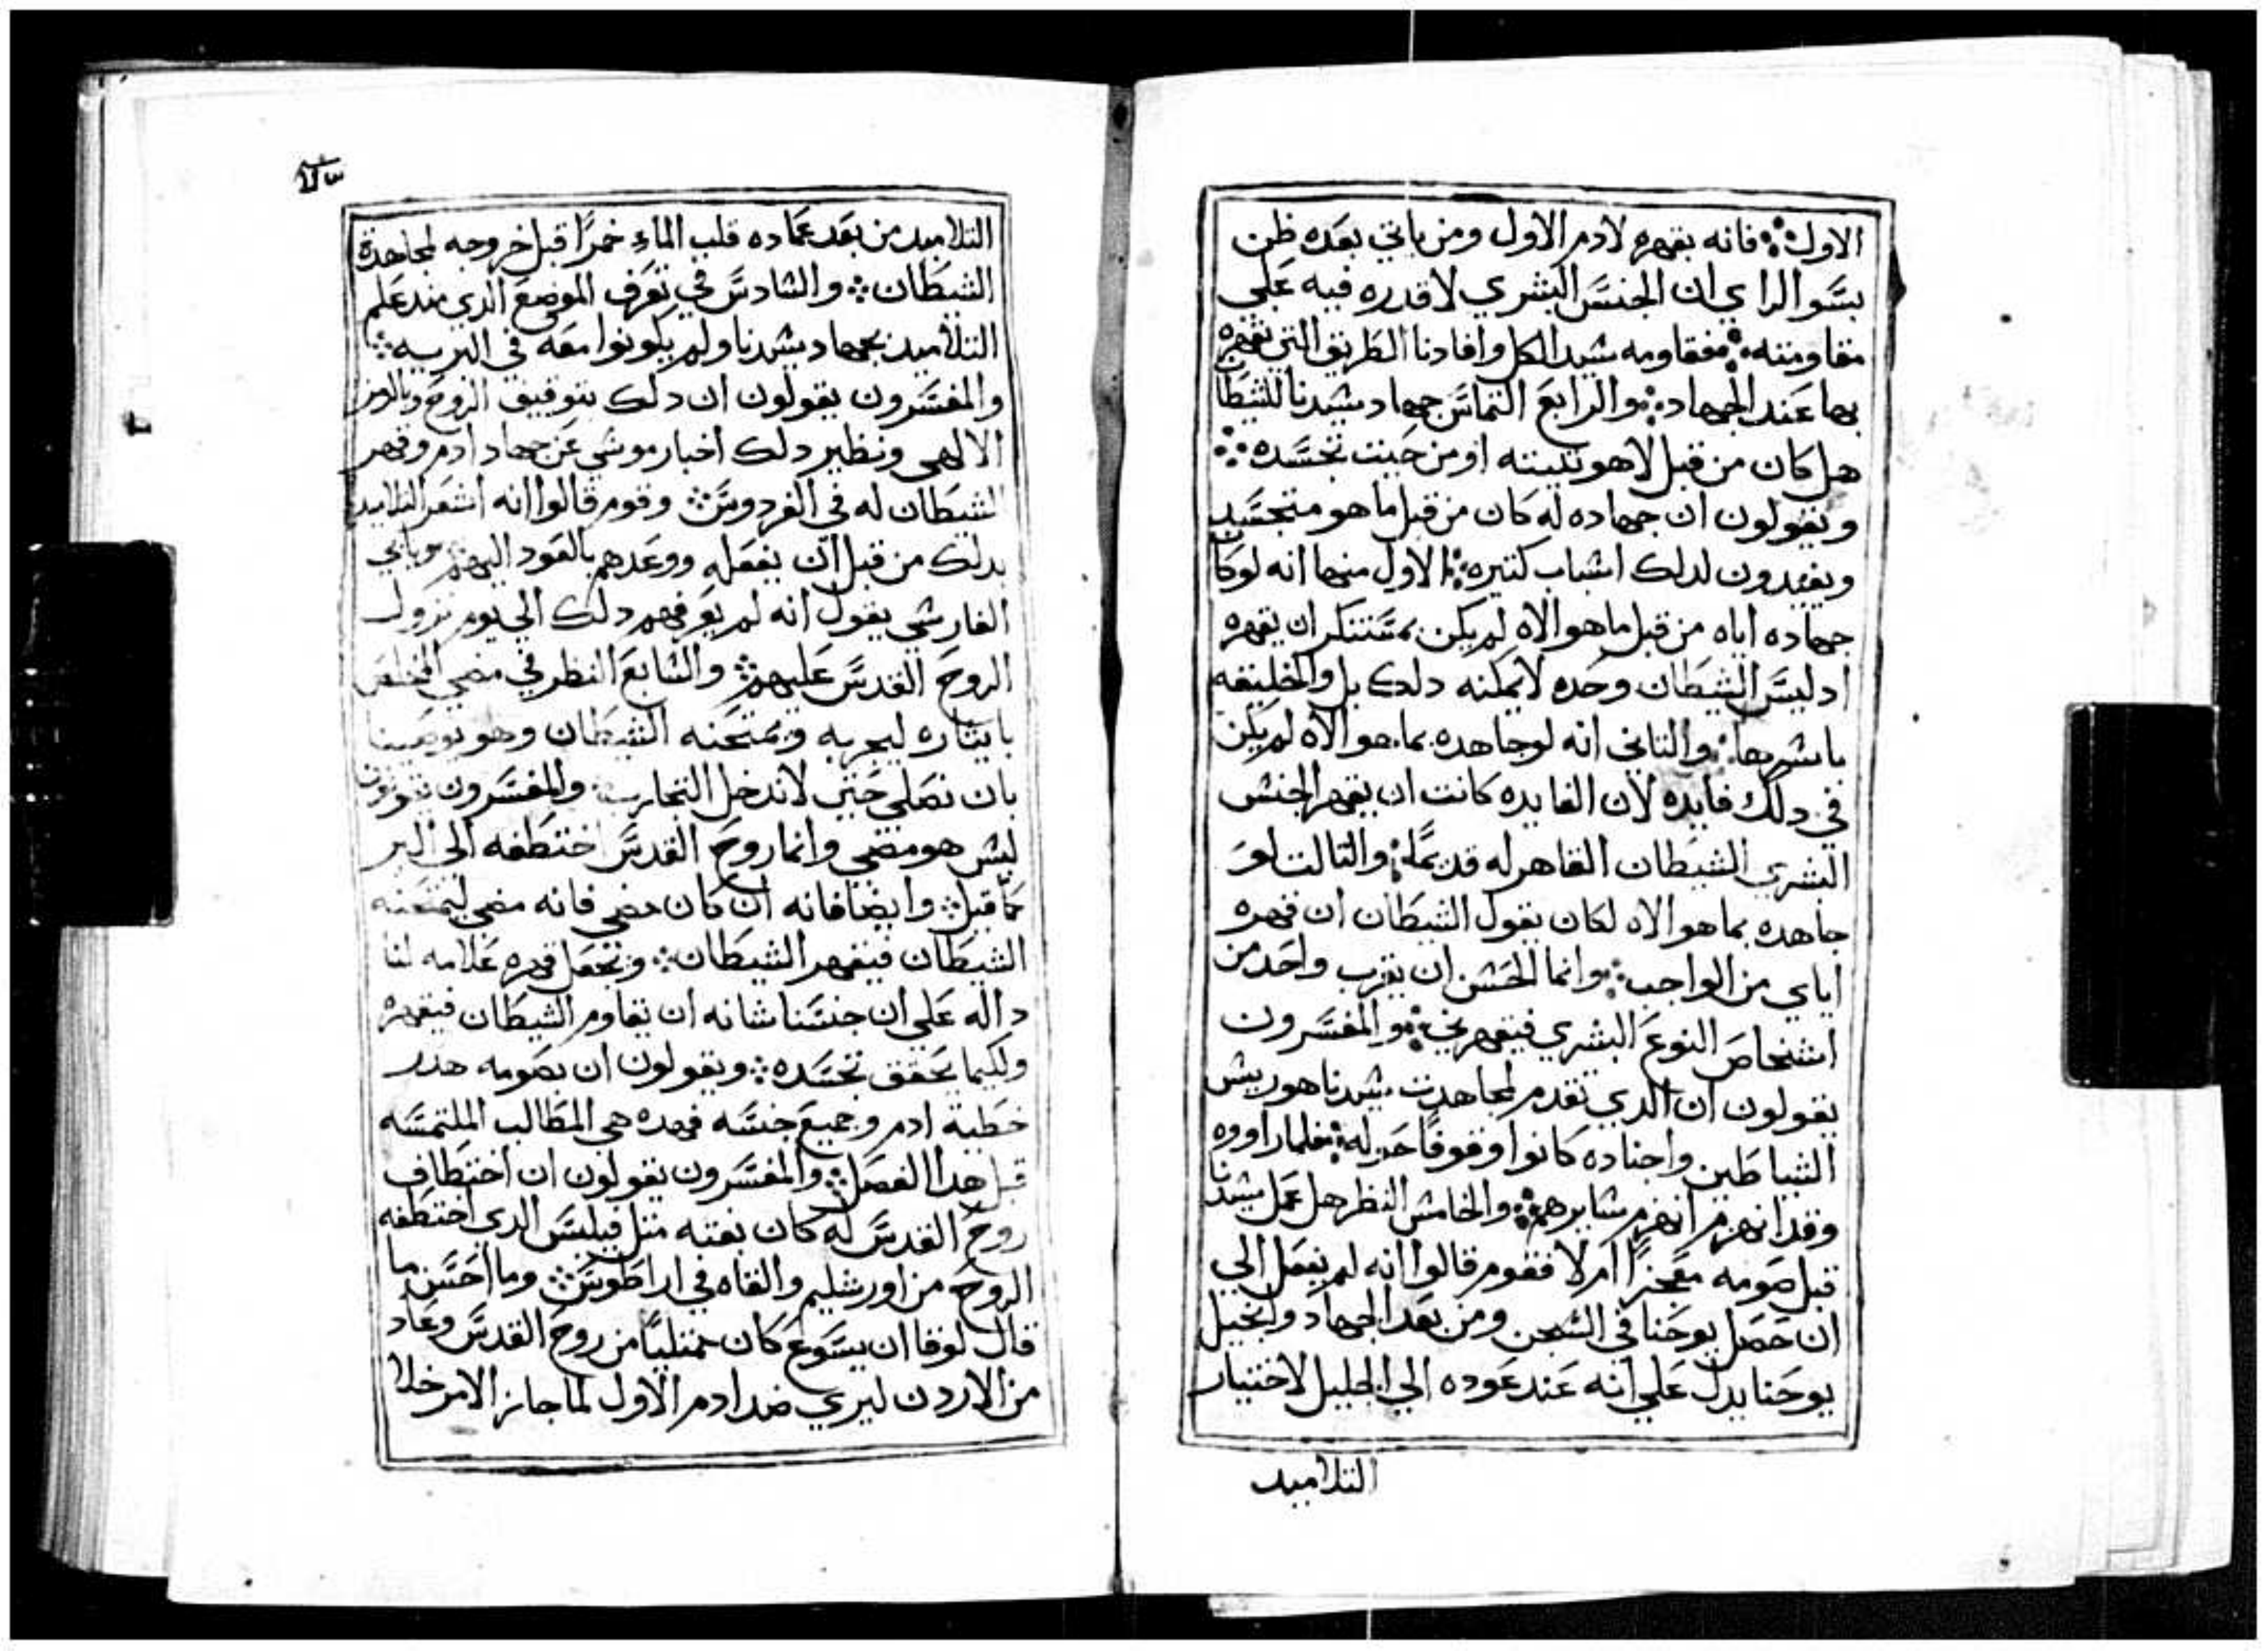 الاول فانه بقهره لادم الاول ومن ياتي بعده ظن
بسو الراي ان الجنس البشري لا قدره فيه علي
مقاومته فقاومه سيد الكل وافادنا الطريق التي نقهره
بها عند الجهاد والرابع التماس جهاد سيدنا للشيطا
هل كان من قبل لاهوتيته او من حيت تجسده
ويقولون ان جهاده له كان من قبل ما هو متجسد
ويفيدون لدلك اسباب كتيره الاول منها انه لو كا
جهاده اياه من قبل ما هو الاه لم يكن بمستنكر ان يقهره
اد ليس الشيطان وحده لا يمكنه دلك بل والخليقه
باسرها والتاني انه لو جاهده بما هو الاه لم يكن
في دلك فايده لان الفايده كانت ان يقهر الجنس
البشري الشيطان القاهر له قديمًا والتالت لو
جاهده بما هو الاه لكان يقول الشيطان ان قهره
اياي من الواجب وانما الحسن ان يقرب واحد من
اشخاص النوع البشري فيقهرني والمفسرون
يقولون ان الدي تقدم لمجاهدت سيدنا هو ريس
الشياطين واجناده كانوا وقوفًا حوله فلما راووه
وقد انهزم انهزم سايرهم والخامس النظر هل عمل سيدنا
قبل صومه معجزًا ام لا فقوم قالوا انه لم يفعل الي
ان حصل يوحنا في السجن ومن بعد الجهاد وانجيل
يوحنا يدل علي انه عند عوده الي الجليل لاختيار
التلاميد
التلاميد من بعد عماده قلب الماء خمرًا قبل خروجه لمجاهدة
الشيطان والسادس في تعرف الموضع الدي منه علم
التلاميد بجهاد سيدنا ولم يكونوا معه في البريه
والمفسرون يقولون ان دلك بتوفيق الروح وبالرمز
الالهي ونظير دلك اخبار موسي عن جهاد ادم وقهر
الشيطان له في الفردوس وقوم قالوا انه اشعر التلاميد
بدلك من قبل ان يفعله ووعدهم بالعود اليهم وياني
الفارسي يقول انه لم يقع فهم دلك الي يوم نزول
الروح القدس عليهم والسابع النظر في مضي المخلص
بايتاره ليجربه ويمتحنه الشيطان وهو يوصينا
بان نصلي حتي لا ندخل التجارب والمفسرون يقولون
ليس هو مضي وانما روح القدس اختطفه الي البر
كما قيل وايضا فانه ان كان مضي فانه مضي ليمتحنه
الشيطان فيقهر الشيطان ويجعل قهره علامه لنا
داله علي ان جنسنا شانه ان يقاوم الشيطان فيقهره
ولكيما يحقق تجسده ويقولون ان بصومه هدر
خطية ادم وجميع جنسه فهده هي المطالب الملتمسه
قبل هدا الفصل والمفسرون يقولون ان اختطاف
روح القدس له كان بغته متل فيلبس الدي اختطفه
الروح من اورشليم والقاه في اراطوس وما احسن ما
قال لوقا ان يسوع كان ممتليًا من روح القدس وعاد
من الاردن ليري ضد ادم الاول لما جاز الامر خلا